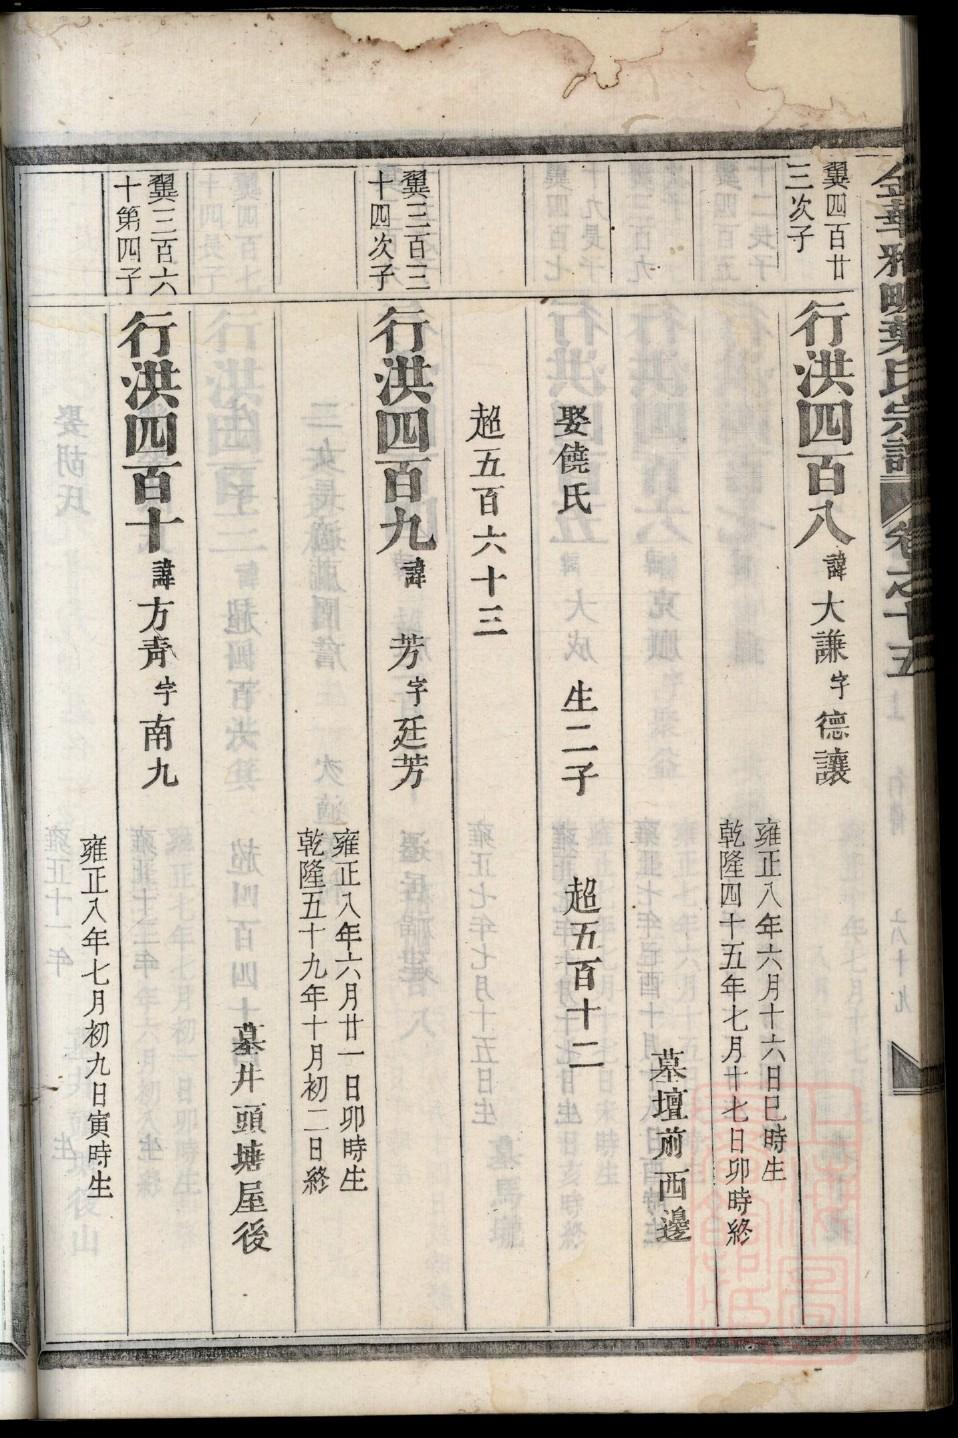 金華雅畈葉氏宗譜 卷之十五
翼四百廿
三次子
行洪四百八 諱大謙字德讓
雍正八年六月十六日巳時生
乾隆四十五年七月廿七日卯時終
墓壇前西邊
娶饒氏 生二子 超五百十二
超五百六十三
翼三百三
十四次子
行洪四百九 諱芳字廷芳
雍正八年六月廿一日卯時生
乾隆五十九年十月初二日終
墓井頭塘屋後
翼三百六
十第四子
行洪四百十 諱方靑字南九
雍正八年七月初九日寅時生